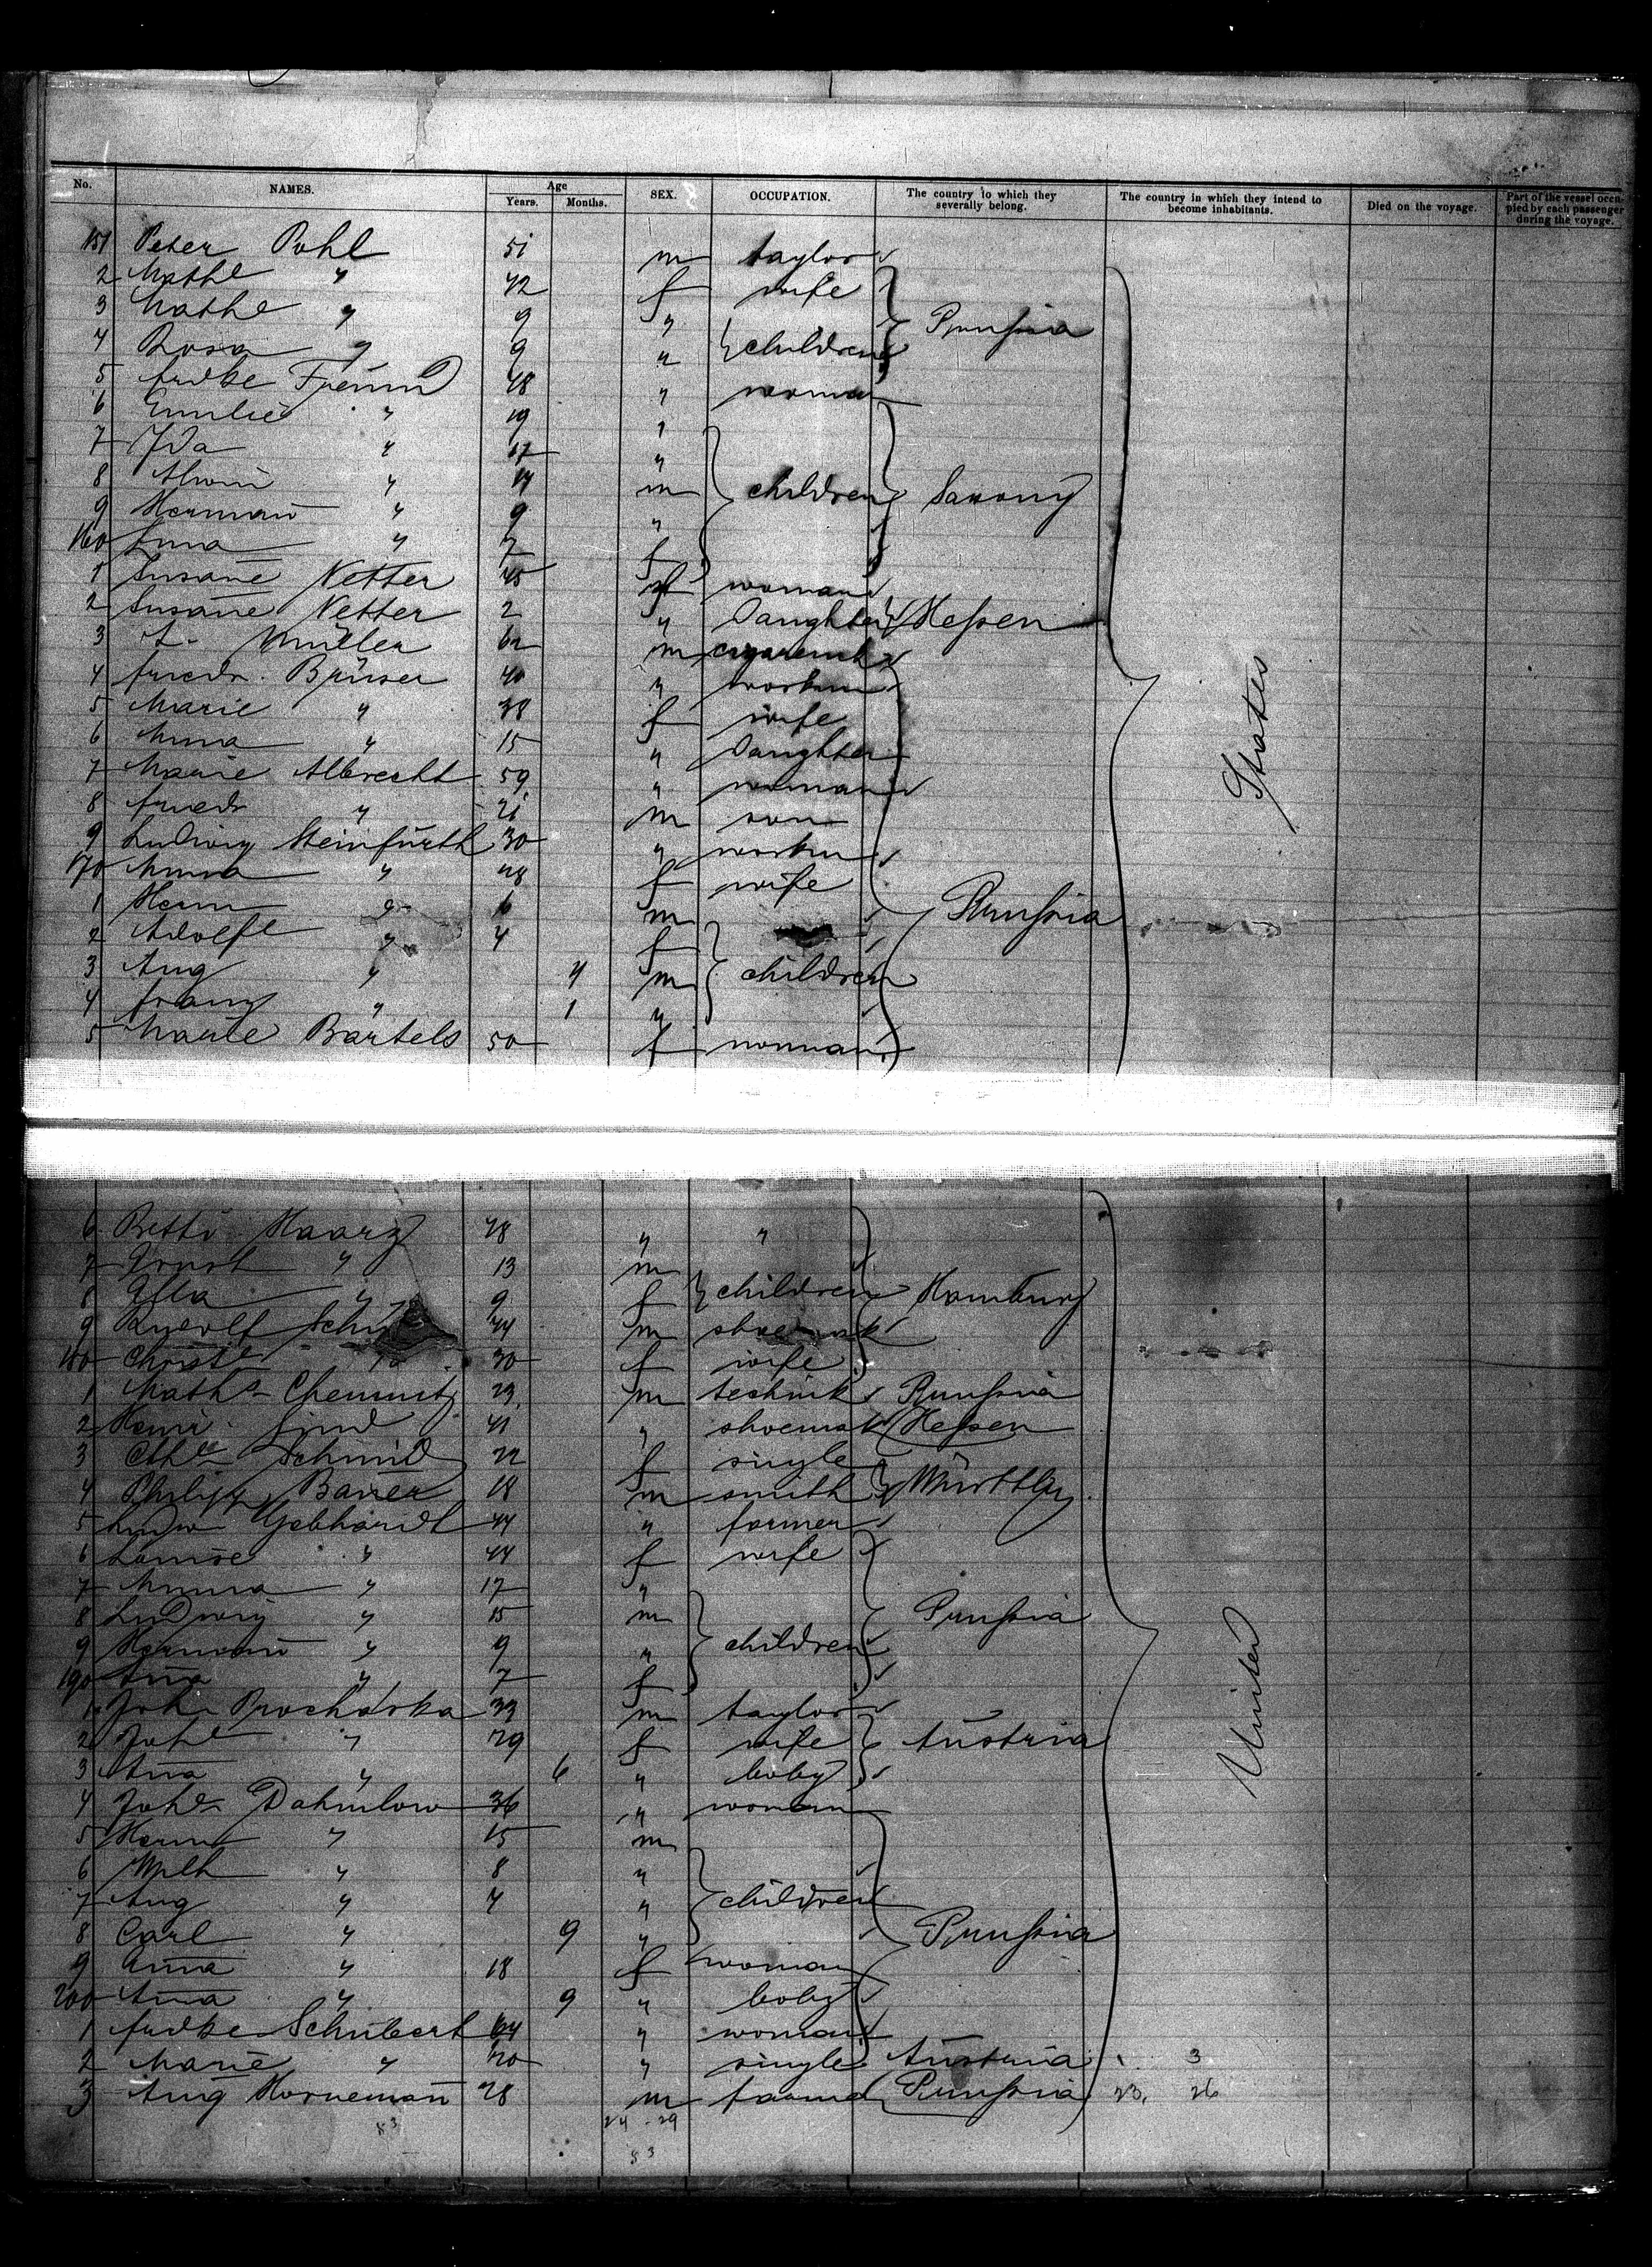 No. NAMES. Age Years. Months. SEX. OCCUPATION. The country to which they severally belong. The country in which they intend to become inhabitants. Died on the voyage. Part of the vessel occupied by each passenger during the voyage.
151 Peter Pohl 51 m taylor
2 Mathe " 42 f wife
3 Mathe " 9 " Prussia
4 Rosa " 9 " children
5 Fredke Freund 48 " woman
6 Emilie " 19 "
7 Ida " 17 "
8 Alwin " 14 m children Saxony
9 Hermann " 9 "
160 " 7 f
1 Susane Netter 45 f woman
2 Susane Netter 2 " Daughter Hessen
3 Müller 62 m
4 Friedr. Brüser 40 " workm
5 Marie " 38 f wife
6 Anna " 15 " Daughter
7 Marie Albrecht 59 " woman
8 Friedr " 21 m son
9 Ludwig Steinfurth 30 " workm
170 " 28 f wife
1 Herm " 6 m Prussia
2 Adolfe " 4 f
3 Aug " 4 m children
4 Franz " 1 "
5 Marie Bartels 50 f woman
States
6 Betti Haarz 48 " "
7 Ernst " 13 m
8 Ella " 9 f children Hamburg
9 Rudolf 44 m shoemak
180 30 f wife
1 Maths Chemnitz 23 m technik Prussia
2 Henr. 41 " shoemak Hessen
3 Schmid 22 f single
4 Philipp Bauer 18 m smith Württbg
5 Ludw Gebhardt 44 " farmer
6 Louise " 44 f wife
7 " 17 "
8 Ludwig " 15 m Prussia
9 Hermann " 9 " children
190 " 7 f
1 Joh. Prochaska 33 m taylor
2 Johe " 29 f wife Austria
3 Aña " 6 " baby
4 Johe Dahmlow 36 " woman
5 Herm " 15 m
6 Wilh " 8 "
7 Aug " 4 " children
8 Carl " 9 " Prussia
9 Anna " 18 f woman
200 Aña " 9 " baby
1 Fredke Schubert 64 " woman
2 Marie " 20 " single Austria 3
3 Aug Hornemañ 28 m farmer Prussia 23, 26
United
83 24 - 29
83